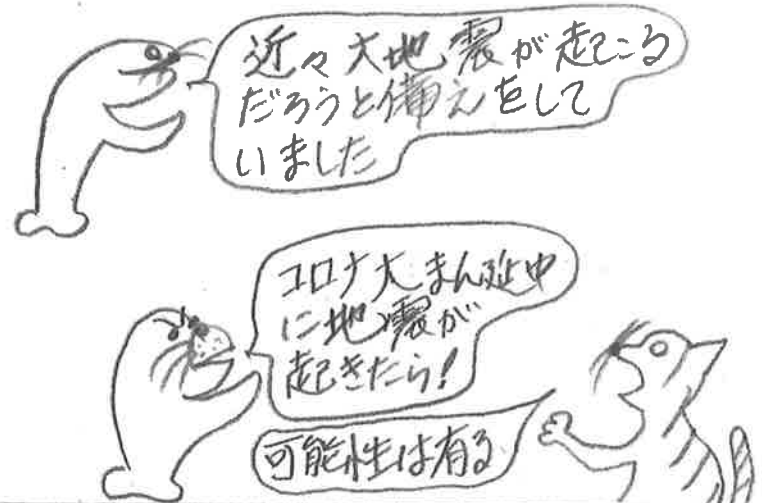 近々大地震が起こる
だろうと備えをして
いました
コロナ大まん延中
に地震が
起きたら!
可能性は有る